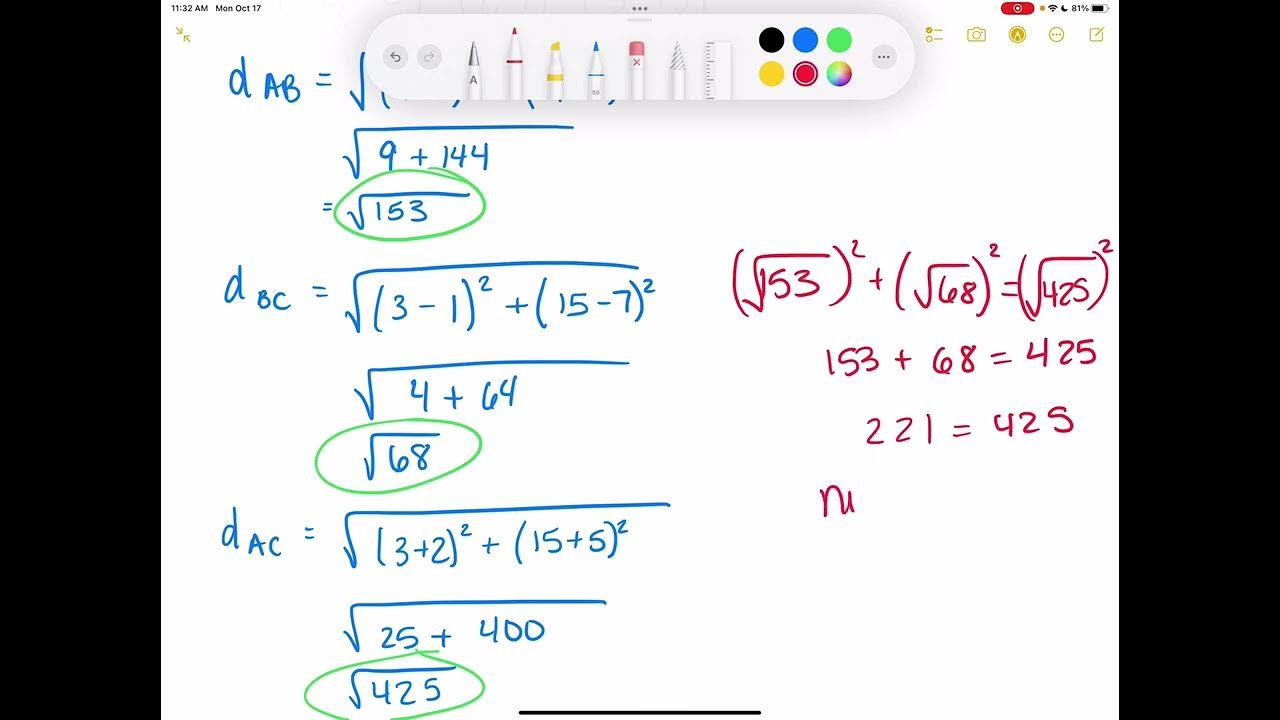 11:32 AM Mon Oct 17
81%
A
50
d AB = √(
√9 + 144
= √153
d BC = √(3 - 1)² + (15 - 7)²
√4 + 64
√68
d AC = √(3+2)² + (15+5)²
√25 + 400
√425
(√153)² + (√68)² = (√425)²
153 + 68 = 425
221 = 425